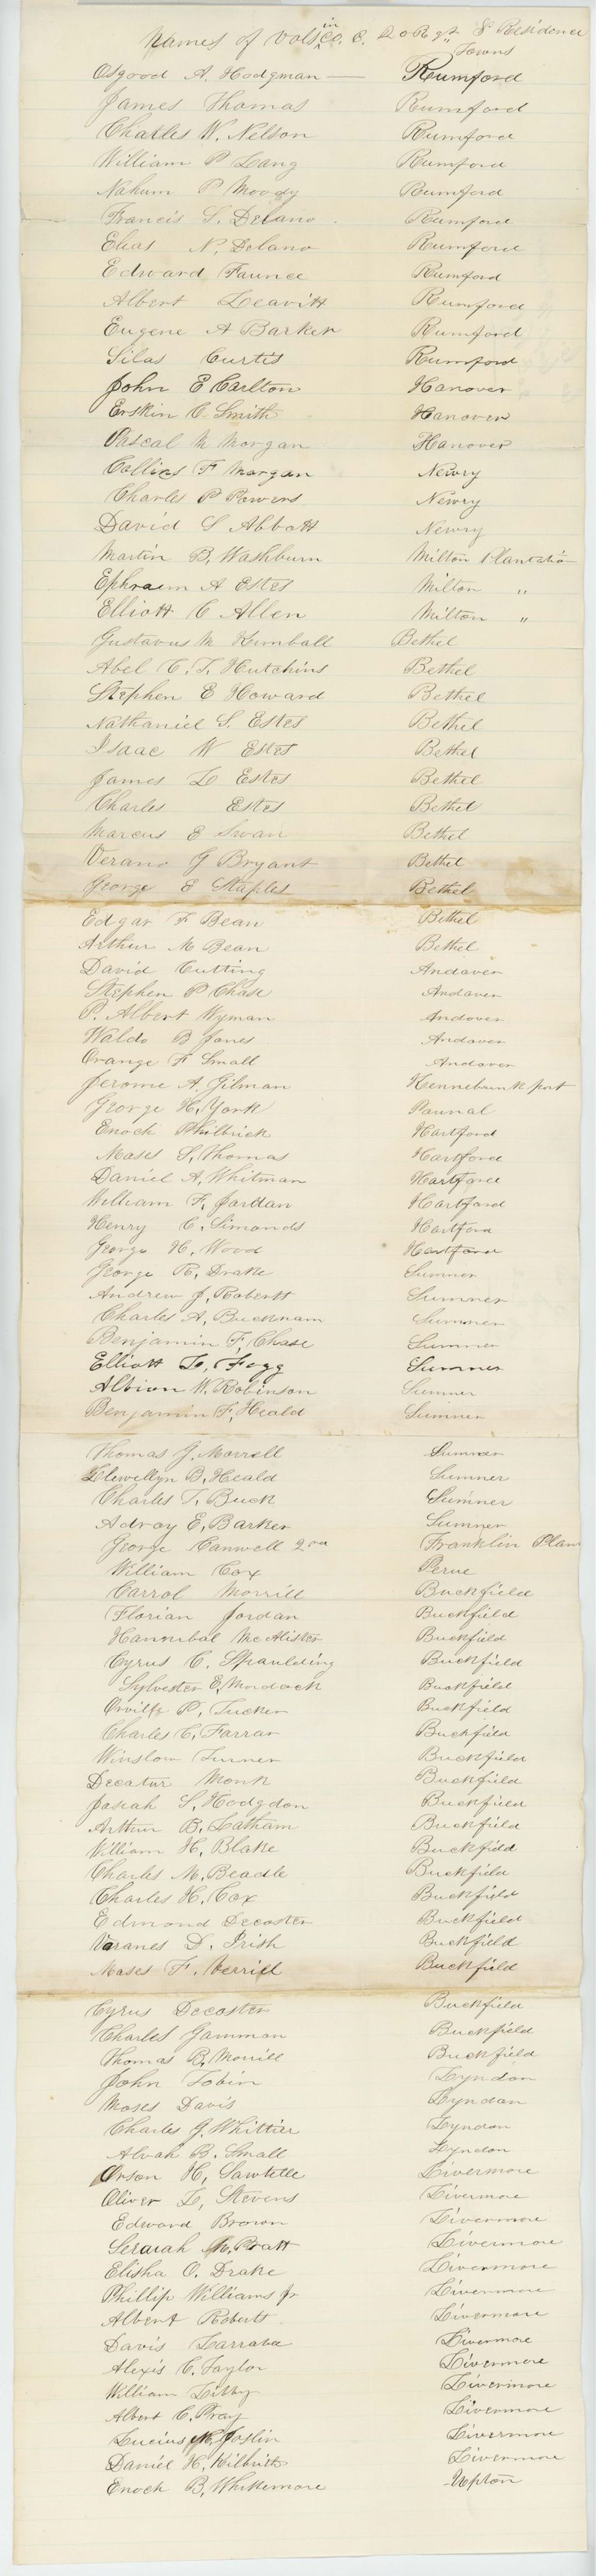 Names of Vols in Co. C. 20 Rgt & Residence
Towns
Osgood A. Hodgman — Rumford
James Thomas Rumford
Charles W. Nelson Rumford
William P Lang Rumford
Nahum P Moody Rumford
Francis S. Delano Rumford
Elias N. Delano Rumford
Edward Faunce Rumford
Albert Leavitt Rumford
Eugene A Barker Rumford
Silas Curtis Rumford
John E Carlton Hanover
Erskin C. Smith Hanover
Pascal M Morgan Hanover
Collins F Morgan Newry
Charles P Powers Newry
David S Abbott Newry
Martin B. Washburn Milton Plantatio
Ephraim A Estes Milton "
Elliott C Allen Milton "
Gustavus M Kimball Bethel
Abel C. T. Hutchins Bethel
Stephen E Howard Bethel
Nathaniel S. Estes Bethel
Isaac W Estes Bethel
James L Estes Bethel
Charles Estes Bethel
Marcus E Swan Bethel
Verano G Bryant Bethel
George E Staples Bethel
Edgar F Bean Bethel
Arthur M Bean Bethel
David Cutting Andover
Stephen P Chase Andover
P. Albert Wyman Andover
Waldo B Jones Andover
Orange F Small Andover
Jerome A. Gilman Kennebunk port
George H. York Paunal
Enoch Philbrick Hartford
Moses S. Thomas Hartford
Daniel A. Whitman Hartford
William F. Jordan Hartford
Henry C. Simonds Hartford
George H. Wood Hartford
George R. Drake Sumner
Andrew J. Robertt Sumner
Charles A. Bucknam Sumner
Benjamin F. Chase Sumner
Elliott L. Fogg Sumner
Albion W. Robinson Sumner
Benjamin F. Heald Sumner
Thomas J. Morrell Sumner
Llewellyn B. Heald Sumner
Charles T. Buck Sumner
Adroy E. Barker Sumner
George Canwell 2nd Franklin Plan
William Cox Perue
Carrol Morrill Buckfield
Florian Jordan Buckfield
Hannibal McAlister Buckfield
Cyrus C. Spaulding Buckfield
Sylvester E. Murdock Buckfield
Orville P. Tucker Buckfield
Charles C. Farrar Buckfield
Winslow Turner Buckfield
Decatur Monk Buckfield
Josiah S. Hodgdon Buckfield
Arthur B. Latham Buckfield
William H. Blake Buckfield
Charles M. Beadle Buckfield
Charles H. Cox Buckfield
Edmond Decoster Buckfield
Varanes D. Irish Buckfield
Moses F. Verrill Buckfield
Cyrus Decoster Buckfield
Charles Gamman Buckfield
Thomas B. Morrill Buckfield
John Tobin Lyndon
Moses Davis Lyndon
Charles G. Whittier Lyndon
Alvah B. Small Lyndon
Orson H. Sawtelle Livermore
Oliver L. Stevens Livermore
Edward Brown Livermore
Seraiah Pratt Livermore
Elisha O. Drake Livermore
Phillip Williams Jr Livermore
Albert Robertt Livermore
Davis Larrabe Livermore
Alexis C. Taylor Livermore
William Libby Livermore
Albert C. Pray Livermore
Lucius Joslin Livermore
Daniel H. Kilbrith Livermore
Enoch B. Whittemore Upton